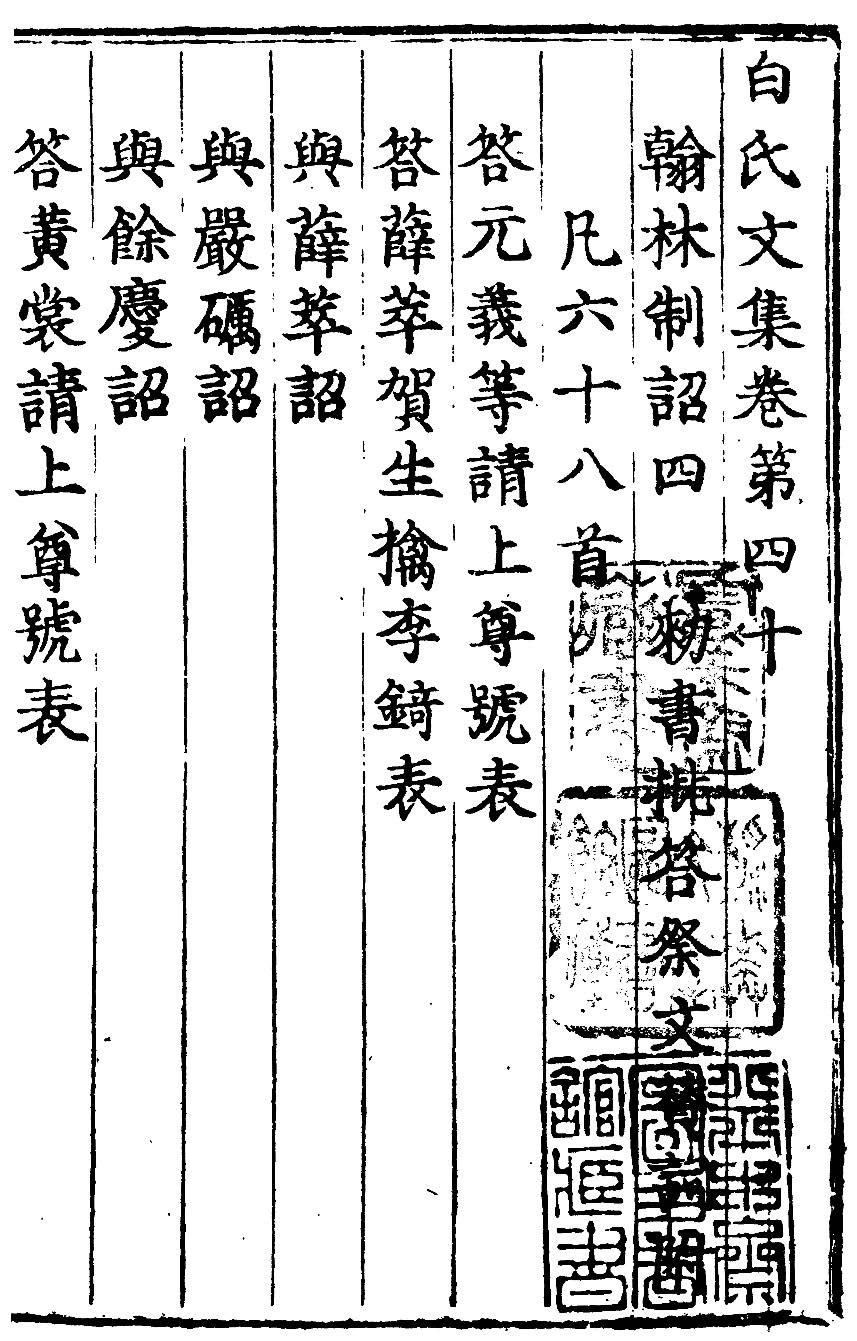 白氏文集卷第四十
翰林制詔四　勑書批荅祭文贊詞附
凡六十八首
荅元義等請上尊號表
荅薛萃賀生擒李錡表
與薛萃詔
與嚴礪詔
與餘慶詔
答黃裳請上尊號表